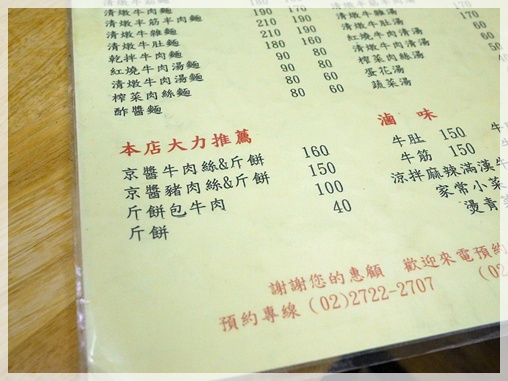 清燉牛肉麵 190 170
清燉半筋半肉麵
清燉牛雜麵 210 190
清燉牛肚麵 210 190
乾拌牛肉麵 180 160
紅燒牛肉湯麵 90 80
清燉牛肉湯麵 90 80
榨菜肉絲麵 80 60
酢醬麵 80 60
清燉牛雜湯 170
清燉牛肚湯
紅燒牛肉清湯
清燉牛肉清湯
榨菜肉絲湯
蛋花湯
蔬菜湯
本店大力推薦
京醬牛肉絲&斤餅 160
京醬豬肉絲&斤餅 150
斤餅包牛肉 100
斤餅 40
滷味
牛肚 150 牛
牛筋 150
涼拌麻辣滿漢牛
家常小菜
燙青
謝謝您的惠顧 歡迎來電預約
預約專線 (02)2722-2707 (02